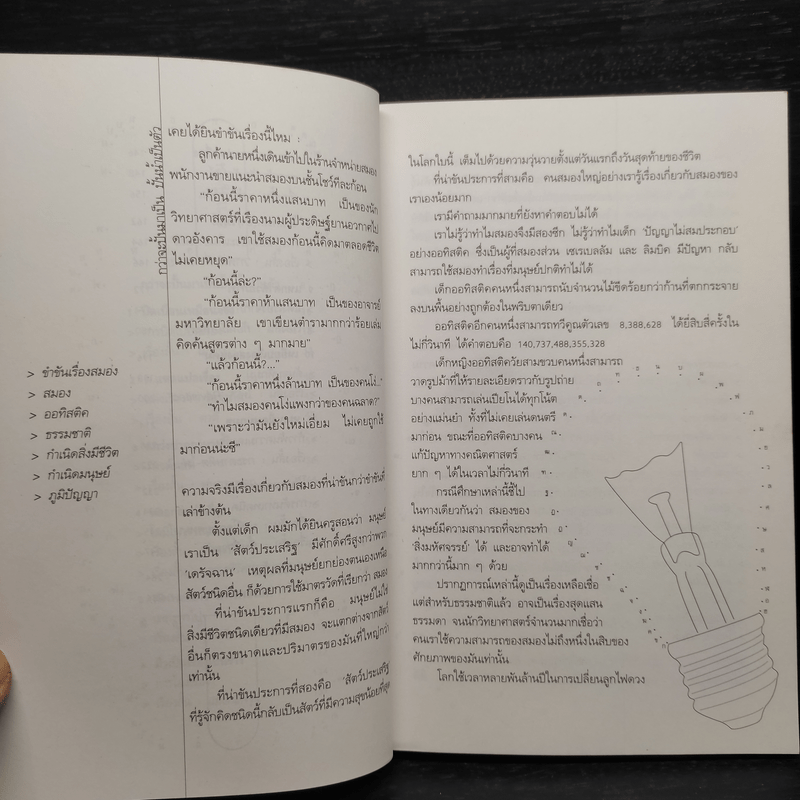 กว่าจะปั้นมาเป็น ปั้นน้ำเป็นตัว
> ขำขันเรื่องสมอง
> สมอง
> ออทิสติค
> ธรรมชาติ
> กำเนิดสิ่งมีชีวิต
> กำเนิดมนุษย์
> ภูมิปัญญา
เคยได้ยินขำขันเรื่องนี้ไหม :
ลูกค้านายหนึ่งเดินเข้าไปในร้านจำหน่ายสมอง
พนักงานขายแนะนำสมองบนชั้นโชว์ทีละก้อน
"ก้อนนี้ราคาหนึ่งแสนบาท เป็นของนัก
วิทยาศาสตร์ที่เรืองนามผู้ประดิษฐ์ยานอวกาศไป
ดาวอังคาร เขาใช้สมองก้อนนี้คิดมาตลอดชีวิต
ไม่เคยหยุด"
"ก้อนนี้ล่ะ?"
"ก้อนนี้ราคาห้าแสนบาท เป็นของอาจารย์
มหาวิทยาลัย เขาเขียนตำรามากกว่าร้อยเล่ม
คิดค้นสูตรต่าง ๆ มากมาย"
"แล้วก้อนนี้?..."
"ก้อนนี้ราคาหนึ่งล้านบาท เป็นของคนโง่.."
"ทำไมสมองคนโง่แพงกว่าของคนฉลาด?"
"เพราะว่ามันยังใหม่เอี่ยม ไม่เคยถูกใช้
มาก่อนน่ะซี"
ความจริงมีเรื่องเกี่ยวกับสมองที่น่าขันกว่าขำขันที่
เล่าข้างต้น
ตั้งแต่เด็ก ผมมักได้ยินครูสอนว่า มนุษย์
เราเป็น 'สัตว์ประเสริฐ' มีศักดิ์ศรีสูงกว่าพวก
'เดรัจฉาน' เหตุผลที่มนุษย์ยกย่องตนเองเหนือ
สัตว์ชนิดอื่น ก็ด้วยการใช้มาตรวัดที่เรียกว่า สมอง
ที่น่าขันประการแรกก็คือ มนุษย์ไม่ใช่
สิ่งมีชีวิตชนิดเดียวที่มีสมอง จะแตกต่างจากสัตว์
อื่นก็ตรงขนาดและปริมาตรของมันที่ใหญ่กว่า
เท่านั้น
ที่น่าขันประการที่สองคือ 'สัตว์ประเสริฐ'
ที่รู้จักคิดชนิดนี้กลับเป็นสัตว์ที่มีความสุขน้อยที่สุด
ในโลกใบนี้ เต็มไปด้วยความวุ่นวายตั้งแต่วันแรกถึงวันสุดท้ายของชีวิต
ที่น่าขันประการที่สามคือ คนสมองใหญ่อย่างเรารู้เรื่องเกี่ยวกับสมองของ
เราเองน้อยมาก
เรามีคำถามมากมายที่ยังหาคำตอบไม่ได้
เราไม่รู้ว่าทำไมสมองจึงมีสองซีก ไม่รู้ว่าทำไมเด็ก 'ปัญญาไม่สมประกอบ'
อย่างออทิสติค ซึ่งเป็นผู้ที่สมองส่วน เซเรเบลลัม และ ลิมบิค มีปัญหา กลับ
สามารถใช้สมองทำเรื่องที่มนุษย์ปกติทำไม่ได้
เด็กออทิสติคคนหนึ่งสามารถนับจำนวนไม้ขีดร้อยกว่าก้านที่ตกกระจาย
ลงบนพื้นอย่างถูกต้องในพริบตาเดียว
ออทิสติคอีกคนหนึ่งสามารถทวีคูณตัวเลข 8,388,628 ได้ยี่สิบสี่ครั้งใน
ไม่กี่วินาที ได้คำตอบคือ 140,737,488,355,328
เด็กหญิงออทิสติควัยสามขวบคนหนึ่งสามารถ
วาดรูปม้าที่ให้รายละเอียดราวกับรูปถ่าย
บางคนสามารถเล่นเปียโนได้ทุกโน้ต
อย่างแม่นยำ ทั้งที่ไม่เคยเล่นดนตรี
มาก่อน ขณะที่ออทิสติคบางคน
แก้ปัญหาทางคณิตศาสตร์
ยาก ๆ ได้ในเวลาไม่กี่วินาที
กรณีศึกษาเหล่านี้ชี้ไป
ในทางเดียวกันว่า สมองของ
มนุษย์มีความสามารถที่จะกระทำ
'สิ่งมหัศจรรย์' ได้ และอาจทำได้
มากกว่านี้มาก ๆ ด้วย
ปรากฏการณ์เหล่านี้ดูเป็นเรื่องเหลือเชื่อ
แต่สำหรับธรรมชาติแล้ว อาจเป็นเรื่องสุดแสน
ธรรมดา จนนักวิทยาศาสตร์จำนวนมากเชื่อว่า
คนเราใช้ความสามารถของสมองไม่ถึงหนึ่งในสิบของ
ศักยภาพของมันเท่านั้น
โลกใช้เวลาหลายพันล้านปีในการเปลี่ยนลูกไฟดวง